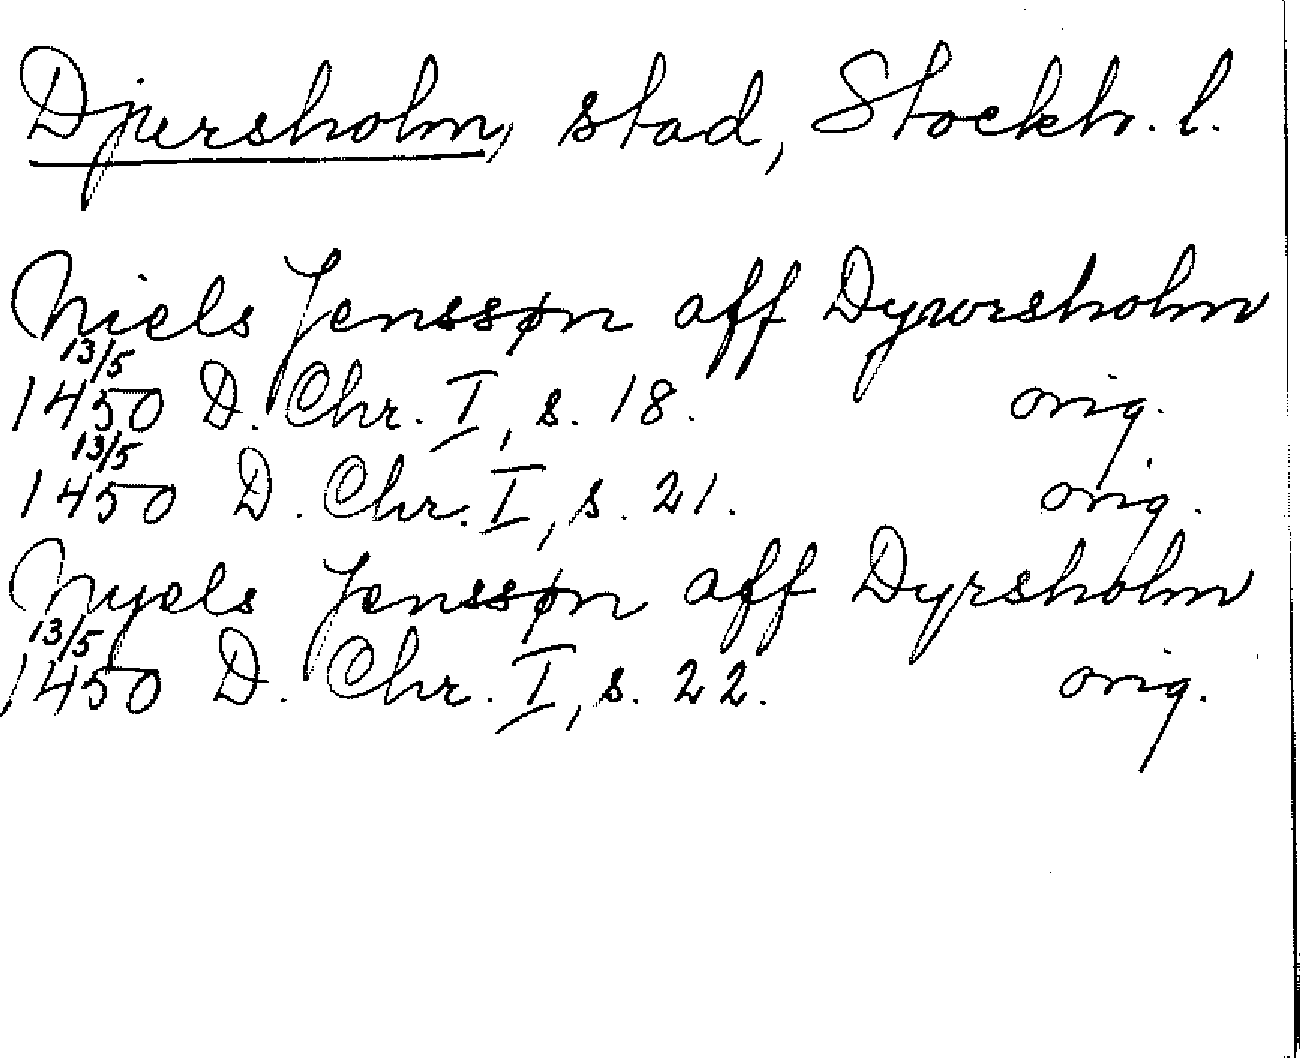 Djursholm, stad, Stockh. l.
Niels Jenssøn aff Dywrsholm
13/5
1450 D. Chr. I, s. 18. orig.
13/5
1450 D. Chr. I, s. 21. orig.
Nyels Jenssøn aff Dyrsholm
13/5
1450 D. Chr. I, s. 22. orig.